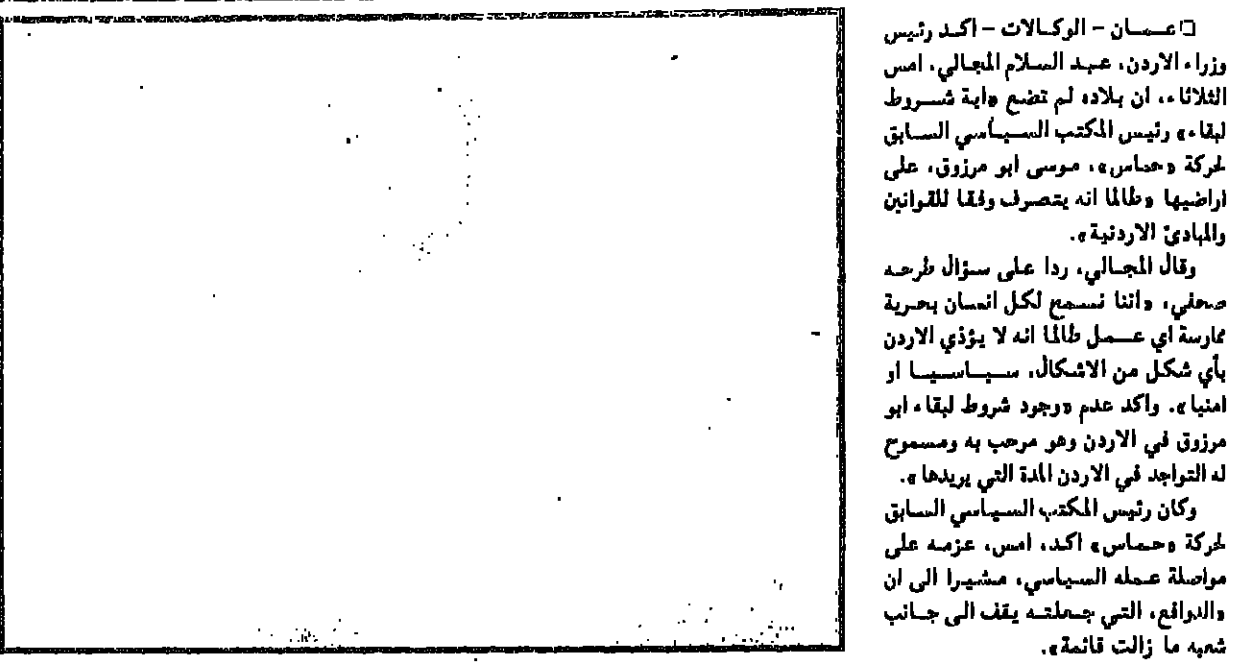 □ عمان – الوكالات – اكد رئيس
وزراء الاردن، عبد السلام المجالي، امس
الثلاثاء، ان بلاده لم تضع «اية شروط
لبقاء» رئيس المكتب السياسي السابق
لحركة «حماس»، موسى ابو مرزوق، على
اراضيها «طالما انه يتصرف وفقا للقوانين
والمبادئ الاردنية».
وقال المجالي، ردا على سؤال طرحه
صحفي، «اننا نسمح لكل انسان بحرية
ممارسة اي عمل طالما انه لا يؤذي الاردن
بأي شكل من الاشكال، سياسيا او
امنيا». واكد عدم «وجود شروط لبقاء ابو
مرزوق في الاردن وهو مرحب به ومسموح
له التواجد في الاردن المدة التي يريدها».
وكان رئيس المكتب السياسي السابق
لحركة «حماس» اكد، امس، عزمه على
مواصلة عمله السياسي، مشيرا الى ان
«الدوافع، التي جعلته يقف الى جانب
شعبه ما زالت قائمة».